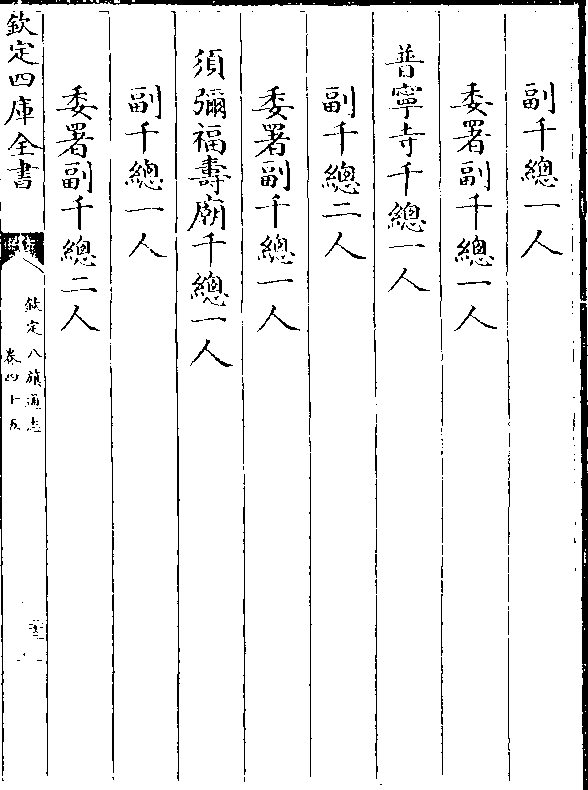 副千總一人
委署副千總一人
普寧寺千總一人
副千總二人
委署副千總一人
須彌福壽廟千總一人
副千總一人
委署副千總二人
欽定四庫全書
欽定八旗通志
卷四十五